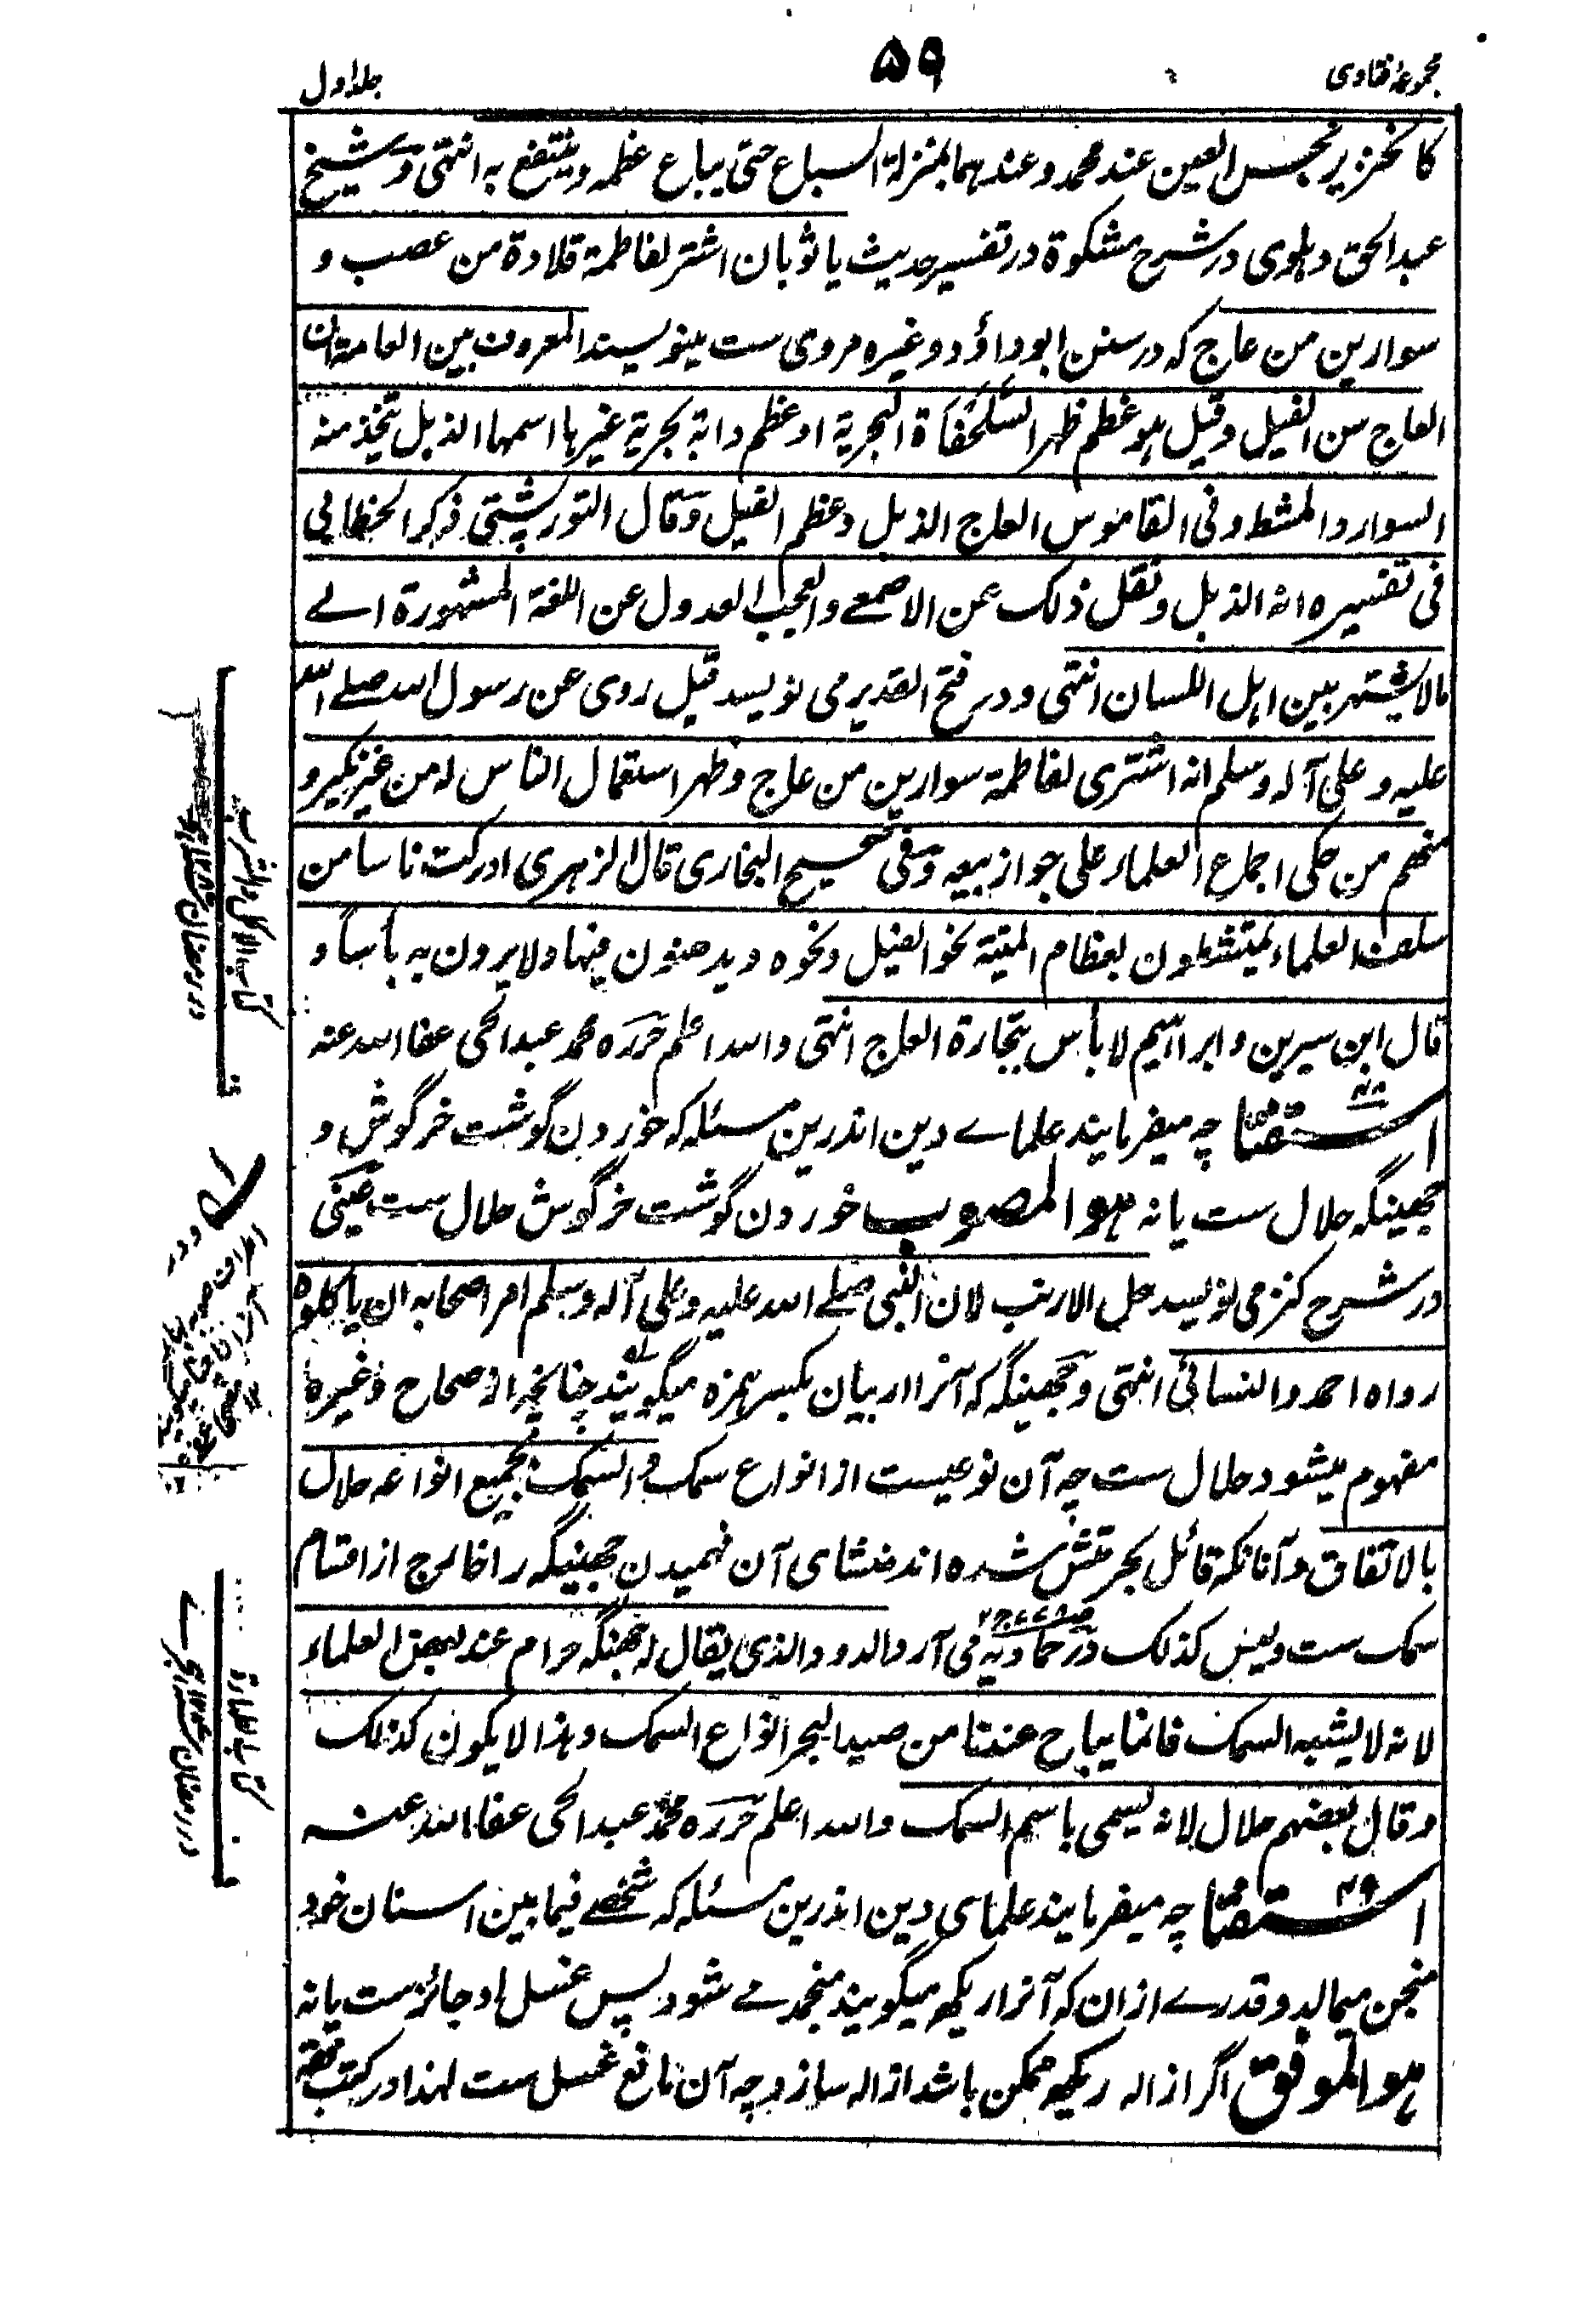 مجموعۂ فتاوی
۵۹
جلد اول
کالخنزیر نجس العین عند محمد و عندہما بمنزلۃ السباع حتی یباع عظمہ و ینتفع بہ انتہی و شیخ
عبد الحق دہلوی در شرح مشکوۃ در تفسیر حدیث یا ثوبان اشتر لفاطمۃ قلادۃ من عصب و
سوارین من عاج کہ در سنن ابو داؤد و غیرہ مروی ست مینویسند المعروف بین العامۃ ان
العاج سن الفیل و قیل ہو عظم ظہر السلحفاۃ البحریۃ او عظم دابۃ بحریۃ غیرہا اسمہا الذبل تتخذ منہ
السوار و المشط و فی القاموس العاج الذبل و عظم الفیل و قال التورپشتی ذکر الخطابی
فی تفسیرہ انہ الذبل و نقل ذلک عن الاصمعے و العجب العدول عن اللغۃ المشہورۃ الے
مالا یشتہر بین اہل اللسان انتہی و در فتح القدیر می نویسد قیل روی عن رسول اللہ صلے اللہ
علیہ و علی آلہ و سلم انہ اشتری لفاطمۃ سوارین من عاج و ظہر استعمال الناس لہ من غیر نکیر و
منہم من حکی اجماع العلماء علی جواز بیعہ و فی صحیح البخاری قال الزہری ادرکت ناسا من
سلف العلماء یمتشطون بعظام المیتۃ نحو الفیل و نحوہ و یدہنون فیہا و لا یرون بہ بأسا و
قال ابن سیرین و ابراہیم لا بأس بتجارۃ العاج انتہی و اللہ اعلم حررہ محمد عبد الحی عفا اللہ عنہ
استفتا ۴۸ چہ میفرمایند علماے دین اندرین مسئلہ کہ خوردن گوشت خرگوش و
جھینگہ حلال ست یا نہ ہو المصوب خوردن گوشت خرگوش حلال ست عینی
در شرح کنز می نویسد حل الارنب لان النبی صلے اللہ علیہ و علی آلہ و سلم امر اصحابہ ان یأکلوہ
رواہ احمد و النسائی انتہی و جھینگہ کہ آنرا اربیان بکسر ہمزہ میگویند چنانچہ از صحاح و غیرہ
مفہوم میشود حلال ست چہ آن نوعیست از انواع سمک و السمک بجمیع انواعہ حلال
بالاتفاق و آنانکہ قائل بحرمتش شدہ اند منشای آن فہمیدن جھینگہ را خارج از اقسام
سمک ست و لیس کذلک در حمادیہ می آرد الدود الذی یقال لہ جھینگہ حرام عند بعض العلماء
لانہ لا یشبہ السمک فانما یباح عندنا من صید البحر انواع السمک و ہذا لا یکون کذلک
و قال بعضہم حلال لانہ یسمی باسم السمک و اللہ اعلم حررہ محمد عبد الحی عفا اللہ عنہ
استفتا ۴۹ چہ میفرمایند علمای دین اندرین مسئلہ کہ شخصے فیما بین اسنان خود
منجن میمالد و قدرے ازان کہ آنرا ریکھ میگویند منجمد مے شود پس غسل او جائز ست یا نہ
ہو الموفق اگر ازالہ ریکھ ممکن باشد ازالہ سازد چہ آن مانع غسل ست لہذا در کتب فقہ